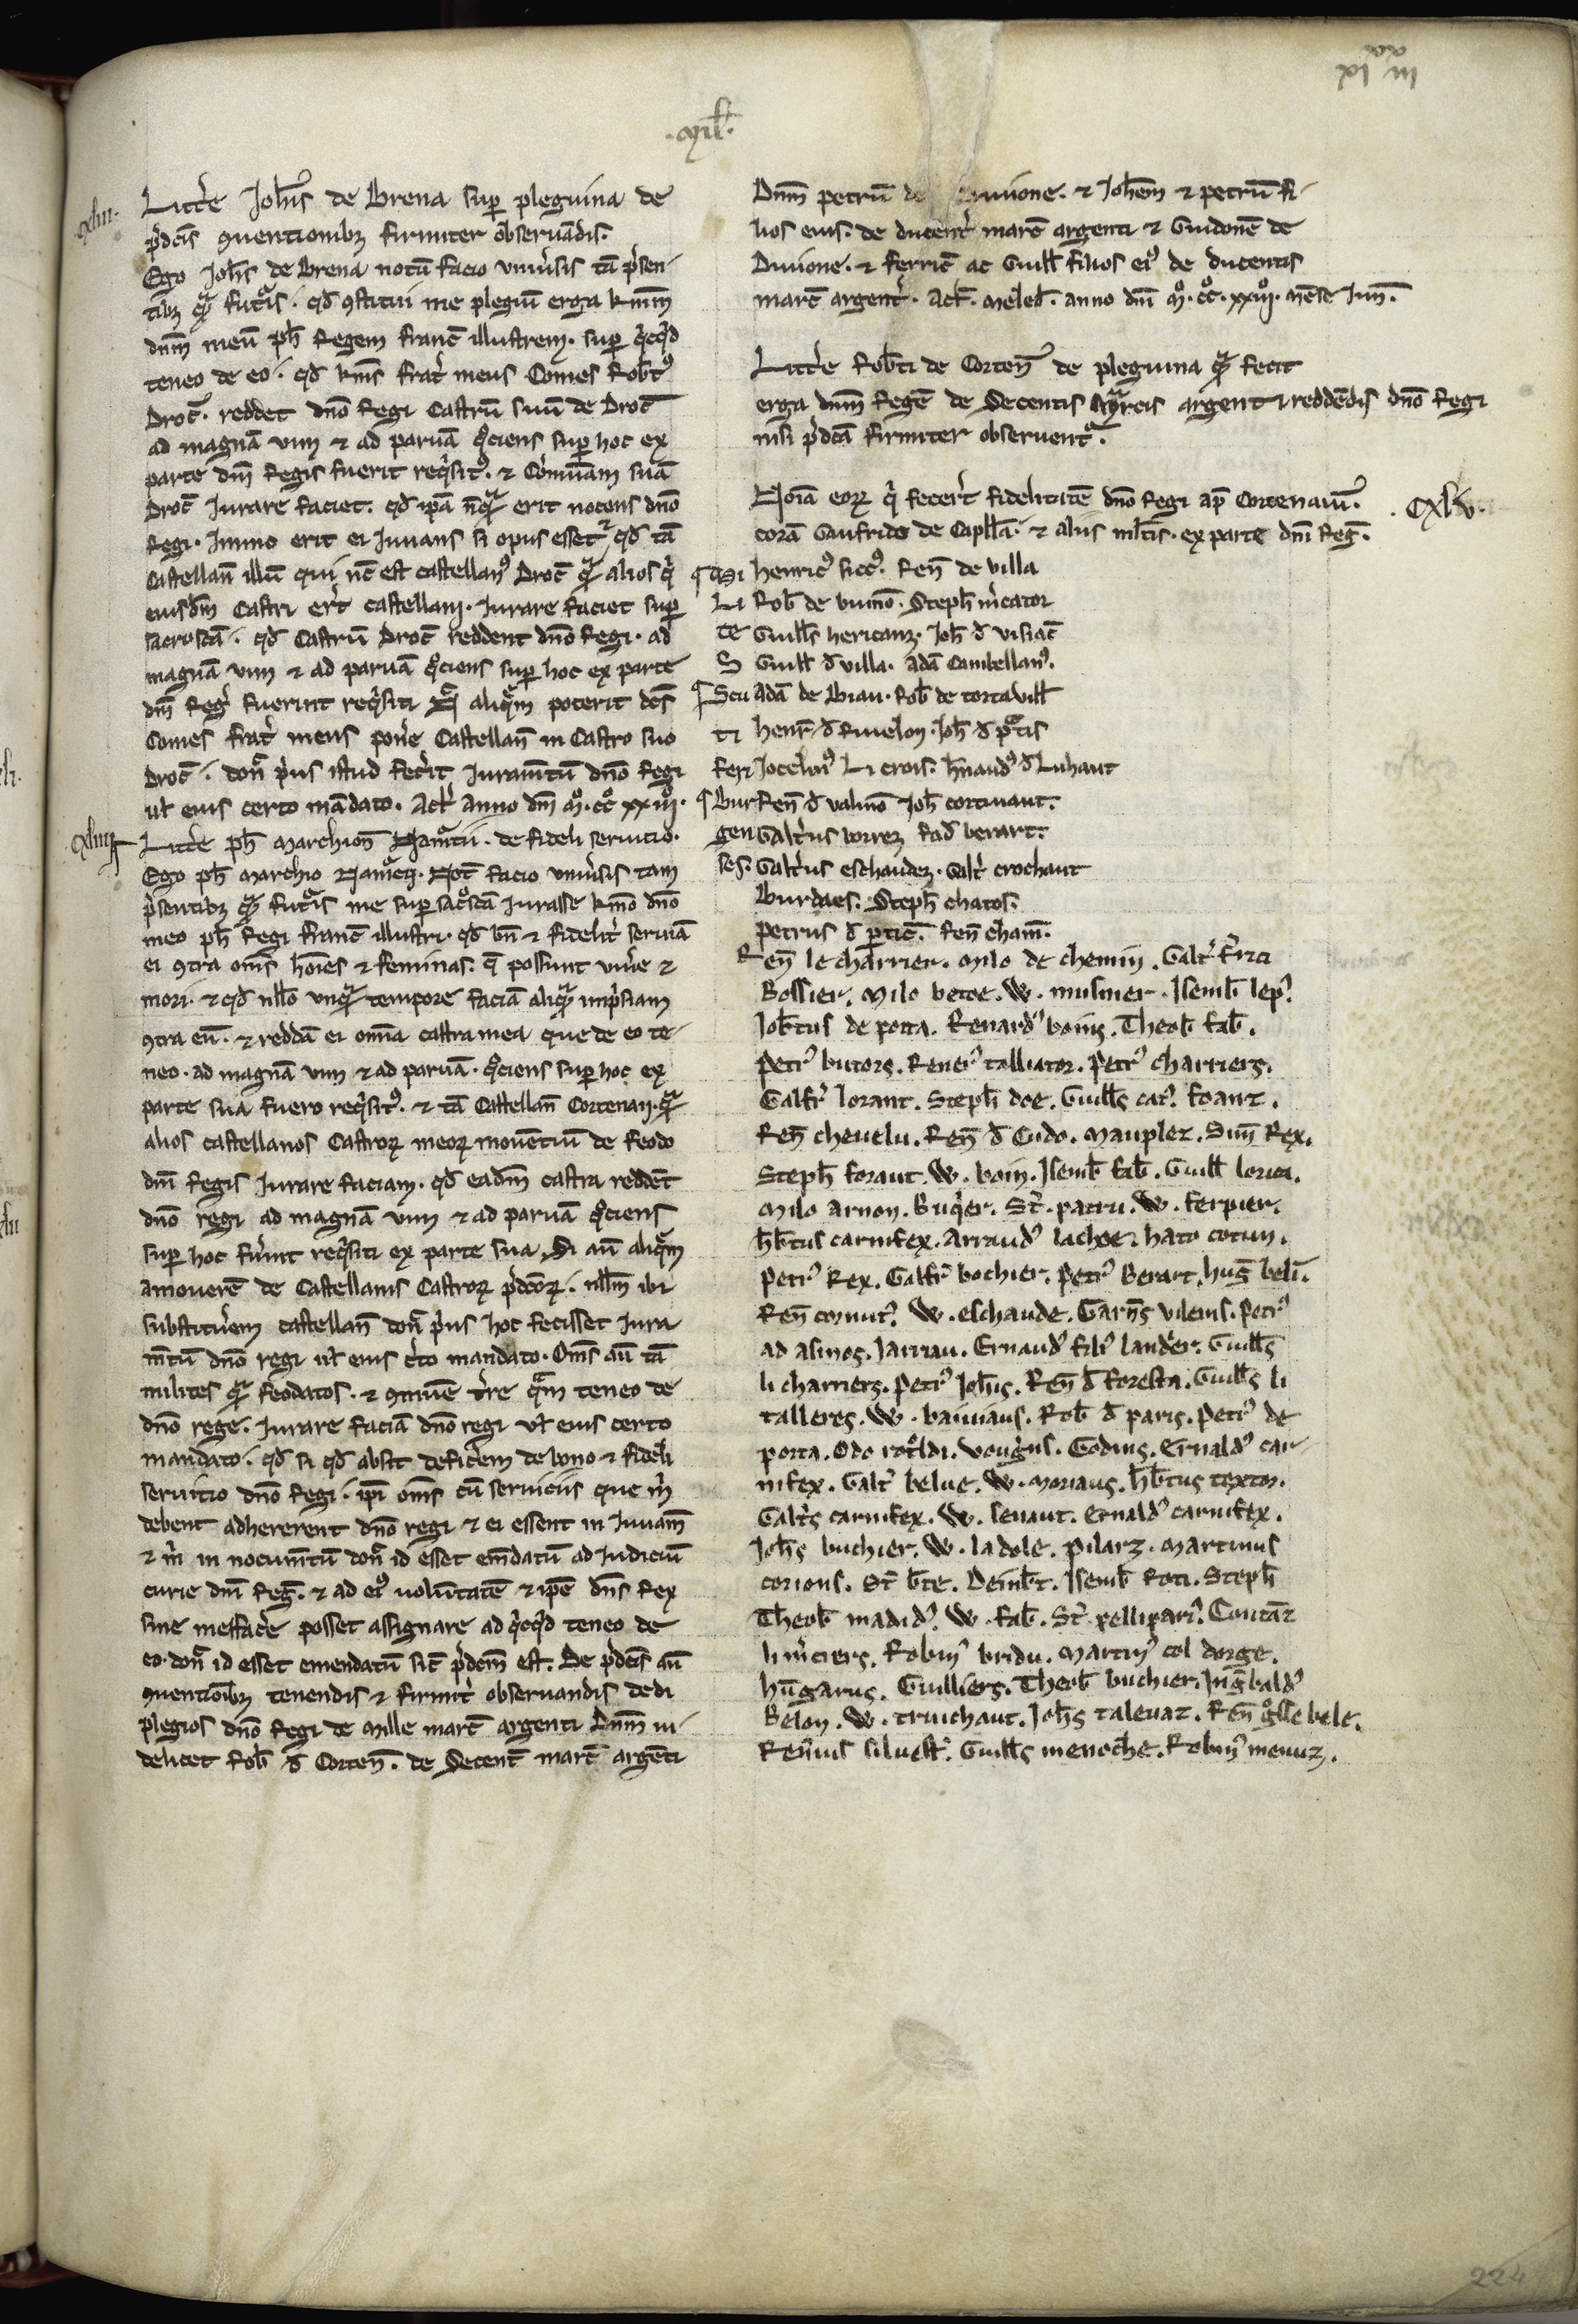 .mil̃.
cxliii.
Litt̾e Joh̃is de Brena sup̱ pleguina de
p̾dc̃is ꝯuentionibꝫ firmiter obseruãdis.
Ego Joh̃s de Brena notũ facio vniu̾sis tã p̾sen-
tibꝫ qᷓ futᷓis. qđ ꝯstitui me plegiũ erga kmũm
dñm meũ ph̃ Regem franc̃ illustrem. sup̱ qͥcqͥd
teneo de eo. qđ kñs frat̾ meus Comes Rob̃tꝰ
Droc̃. reddet dño Regi Castrũ suũ de Droc̃
ad magnã vim ⁊ ad paruã qͦciens sup̱ hoc ex
parte dñi Regis fuerit reqͥsitꝰ. ⁊ Cõmuñam suã
Droc̃ Jurare faciet. qđ ip̃ã nũqᷓ erit nocens dño
Regi. Jmmo erit ei Juuans si opus esset. ⁊ qđ tã
Castellañ illũ qui nc̃ est castellanꝰ Droc̃ qᷓ alios qͥ
eiusdm̃ Castri er̃t castellani. Jurare faciet sup̱
sacrosc̃a. qđ Castrũ Droc̃ reddent dño Regi. ad
magnã vim ⁊ ad paruã qͦciens sup̱ hoc ex parte
dñi Reg̾ fuerint reqͥsiti Nᷓ aliqᷓm poterit dc̃s
Comes frat̾ meus pon̾e Castellañ in Castro suo
Droc̃. donᷓ p̾us istud fec̾it Juram̃tũ dño Regi
ul̃ eius certo mãdato. Act̾ anno dñi .mͦ. ccͦ xxͦiii.
cxliiii
Litt̾e ph̃ marchioñ Namᷓcii. de fideli seruicio.
Ego ph̃ marchio Namᷓcẽ. Not̃ facio vniu̾sis tam
p̾sentibꝫ qᷓ futᷓis me sup̱ sacͦsc̃a Jurasse kmõ dño
meo ph̃ Regi franc̃ illustri. qđ bñ ⁊ fidelit̾ seruiã
ei ꝯtra om̃s hoĩes ⁊ feminas. q̃ possunt viu̾e ⁊
mori. ⁊ qđ nll̃o vnqᷓ tempore faciã aliqᷓ imp̾siam
ꝯtra eũ. ⁊ reddã ei om̃ia castra mea que de eo te-
neo. ad magnã vim ⁊ ad paruã. qͦciens sup̱ hoc ex
parte sua fuero reqͥsitꝰ. ⁊ tã Castellañ Cortenaii. qᷓ
alios castellanos Castroꝝ meoꝝ mouẽtiũ de feodo
dñi Regis Jurare faciam. qđ eadm̃ castra reddẽt
dño regi ad magnã vim ⁊ ad paruã qͦciens
sup̱ hoc fu̾int reqͥsiti ex parte sua. Si aũ aliqᷓm
amouerẽ de Castellanis Castroꝝ p̾dcõꝝ. nll̃m ibi
substitu̾em castellañ donᷓ p̾us hoc fecisset Jura
m̃tũ dño regi ul̃ eius c̾to mandato. Om̃s aũ tã
milites qᷓ feodatos. ⁊ ꝯmuẽ t̾re qᷓm teneo de
dño rege. Jurare faciã dño regi vl̃ eius certo
mandato. qđ si qđ absit defic̾em de bono ⁊ fideli
seruitio dño Regi. ip̃i om̃s cũ seruiciis que m̾
debent adhererent dño regi ⁊ ei essent in Juuam̃
⁊ m̾ in nocum̃tũ donᷓ id esset em̃datũ ad Judiciũ
curie dñi Reg̃. ⁊ ad eiꝰ uolũtatẽ ⁊ ip̃e dñs Rex
sine meffac̾e posset assignare ad qͥcqͥd teneo de
eo. donᷓ id esset emendatũ sic̃ p̾dcm̃ est. De p̾dc̃is aũ
ꝯuentiõibꝫ tenendis ⁊ firmit̾ obseruandis dedi
plegios dño Regi de mille marc̃ argenti Dñm ui-
delicet Rob̃ đ Corteñ. de Decent̃ marc̃ argẽti
Dñm petrũ de Diuione. ⁊ Joh̃em ⁊ petrũ fi-
lios eius. de ducent̾ marc̃ argenti ⁊ Guidonẽ de
Diuione. ⁊ ferric̃ ac Guill̃ filios eiꝰ de ducentis
marc̃ argent̾. Act̃. meled̃. anno dñi mͦ. ccͦ. xxͦiii. mẽse Jun̾.
Litt̾e Rob̃ti de Corteñ de pleguina qᷓ fecit
erga dñm Regẽ de Decentis marcis argent̾ reddẽdis dño Regi
nisi p̾dcã firmiter obseruentᷓ.
cxlv.
Noĩa eoꝝ qͥ fecer̃t fidelitatẽ dño Regi ap̃ Cortenaiũ.
corã Gaufrido de Capll̃a. ⁊ aliis ml̃tis. ex parte dñi Reg̃.
¶ mi henricꝰ siccꝰ. Reñ de villa
li Rob̃ de vimõ. Steph̃ m̾cator
te Guill̃s hericanz. Joh̃ đ visiac̃
s Guill̃ đ villa. adã Cambellanꝰ.
¶ Scu adã de biau. Rob̃ de tortavill̃
ti henr̃ đ Riuelon. Joh̃ đ pᷓtis
feri Jocelinꝰ Li crois. h̾naudꝰ đ Luhaut
¶ bur Reñ đ valmõ Joh̃ cortinant.
gen Galt̾us borrez fađ berart.
ses. Galt̾us eschaudez. Galt̾ crochaut
burdaes. Steph̃ chatos.
petrus đ p̱tic̃. Reñ cham̃.
Reñ le charrier. milo de chemin. Galt̾ firci
Bossier. milo betoe. W. musnier. Jsemb̃ lep.
Job̃tus de porta. Renardꝰ boins. Theob̃ fab̃.
Petrꝰ butors. Renerꝰ talliator. Petrꝰ charriers.
Galfrꝰ lorant. Steph̃ doe. Guill̃s catꝰ. foant.
Reñ cheuelu. Reñ đ Cudo. maupler. Sim̃ Rex.
Steph̃ forant. W. boin. Jsemb̃ fab̃. Guill̃ lorica.
milo arnon. Buqͥer. St̾. patru. W. ferpier.
h̃b̃tus carnifex. arraudꝰ lachoe. hato cotun.
petrꝰ Rex. Galfrꝰ bochier. petrꝰ Berart. hug̃ beli.
Reñ cornutꝰ. W. eschaude. Garñs vileins. petrꝰ
ad asinos. Jarriau. Ernaudꝰ filꝰ lander. Guill̃s
li charriers. petrꝰ Joh̃is. Reñ đ foresta. Guill̃s li
talleres. W. bauiaus. Rob̃ đ paris. petrꝰ de
porta. Odo rotoldi. vougͥns. Godins. Ernaldꝰ car-
nifex. Galt̾ belue. W. moriaus. h̃b̃tus textor.
Galt̾s carnifex. W. leuaut. Ernaldꝰ carnifex.
Joh̃s buchier. W. ladole. pilarz. martinus
corions. St̃ b̃te. Deimb̃t. Jsemb̃ Roti. Steph̃
Theob̃ madidꝰ. W. fab̃. St̾ pellipariꝰ. Contãz
li m̾ciers. Robinꝰ bridu. martinꝰ col dorge.
hũgarus. Guilliers. Theob̃ buchier. Jng̃baldꝰ
Belon. W. truichaut. Joh̃s taleuaz. Reñ gͦsse bele.
Ren̾ius siluestꝰ. Guill̃s menoche. Robinꝰ menuz.
224